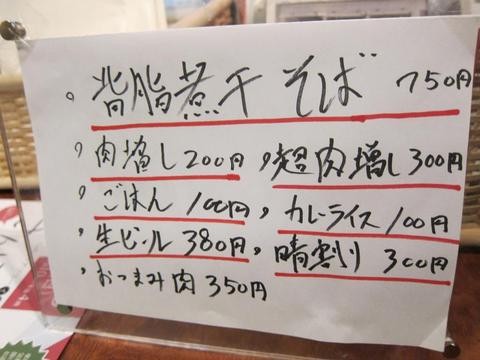 背脂煮干そば 750円
肉増し200円, 超肉増し300円
ごはん 100円, カレーライス100円
生ビール 380円, 晴割り 300円
おつまみ肉 350円